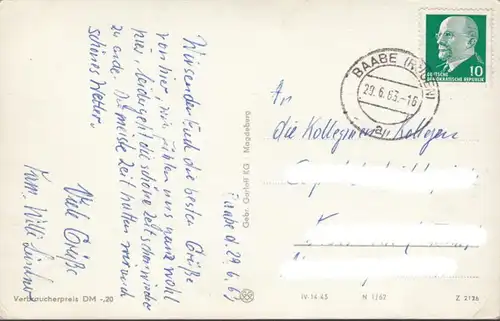 Baabe d. 29.6.63
Wir senden Euch die besten Grüße
von hier, wir fühlen uns ganz wohl
hier, leider geht die schöne Zeit schon wieder
zu ende. Die meiste Zeit hatten wir auch
schönes Wetter.
Viele Grüße
Fam. Willi Lindner
Verbraucherpreis DM -,20
Gebr. Garloff KG Magdeburg
BAABE (RÜGEN)
29.6.63.-16
DEUTSCHE
DEMOKRATISCHE REPUBLIK
10
An
die Kolleginnen u. Kollegen
IV-14-45 N 1/62 Z 2126